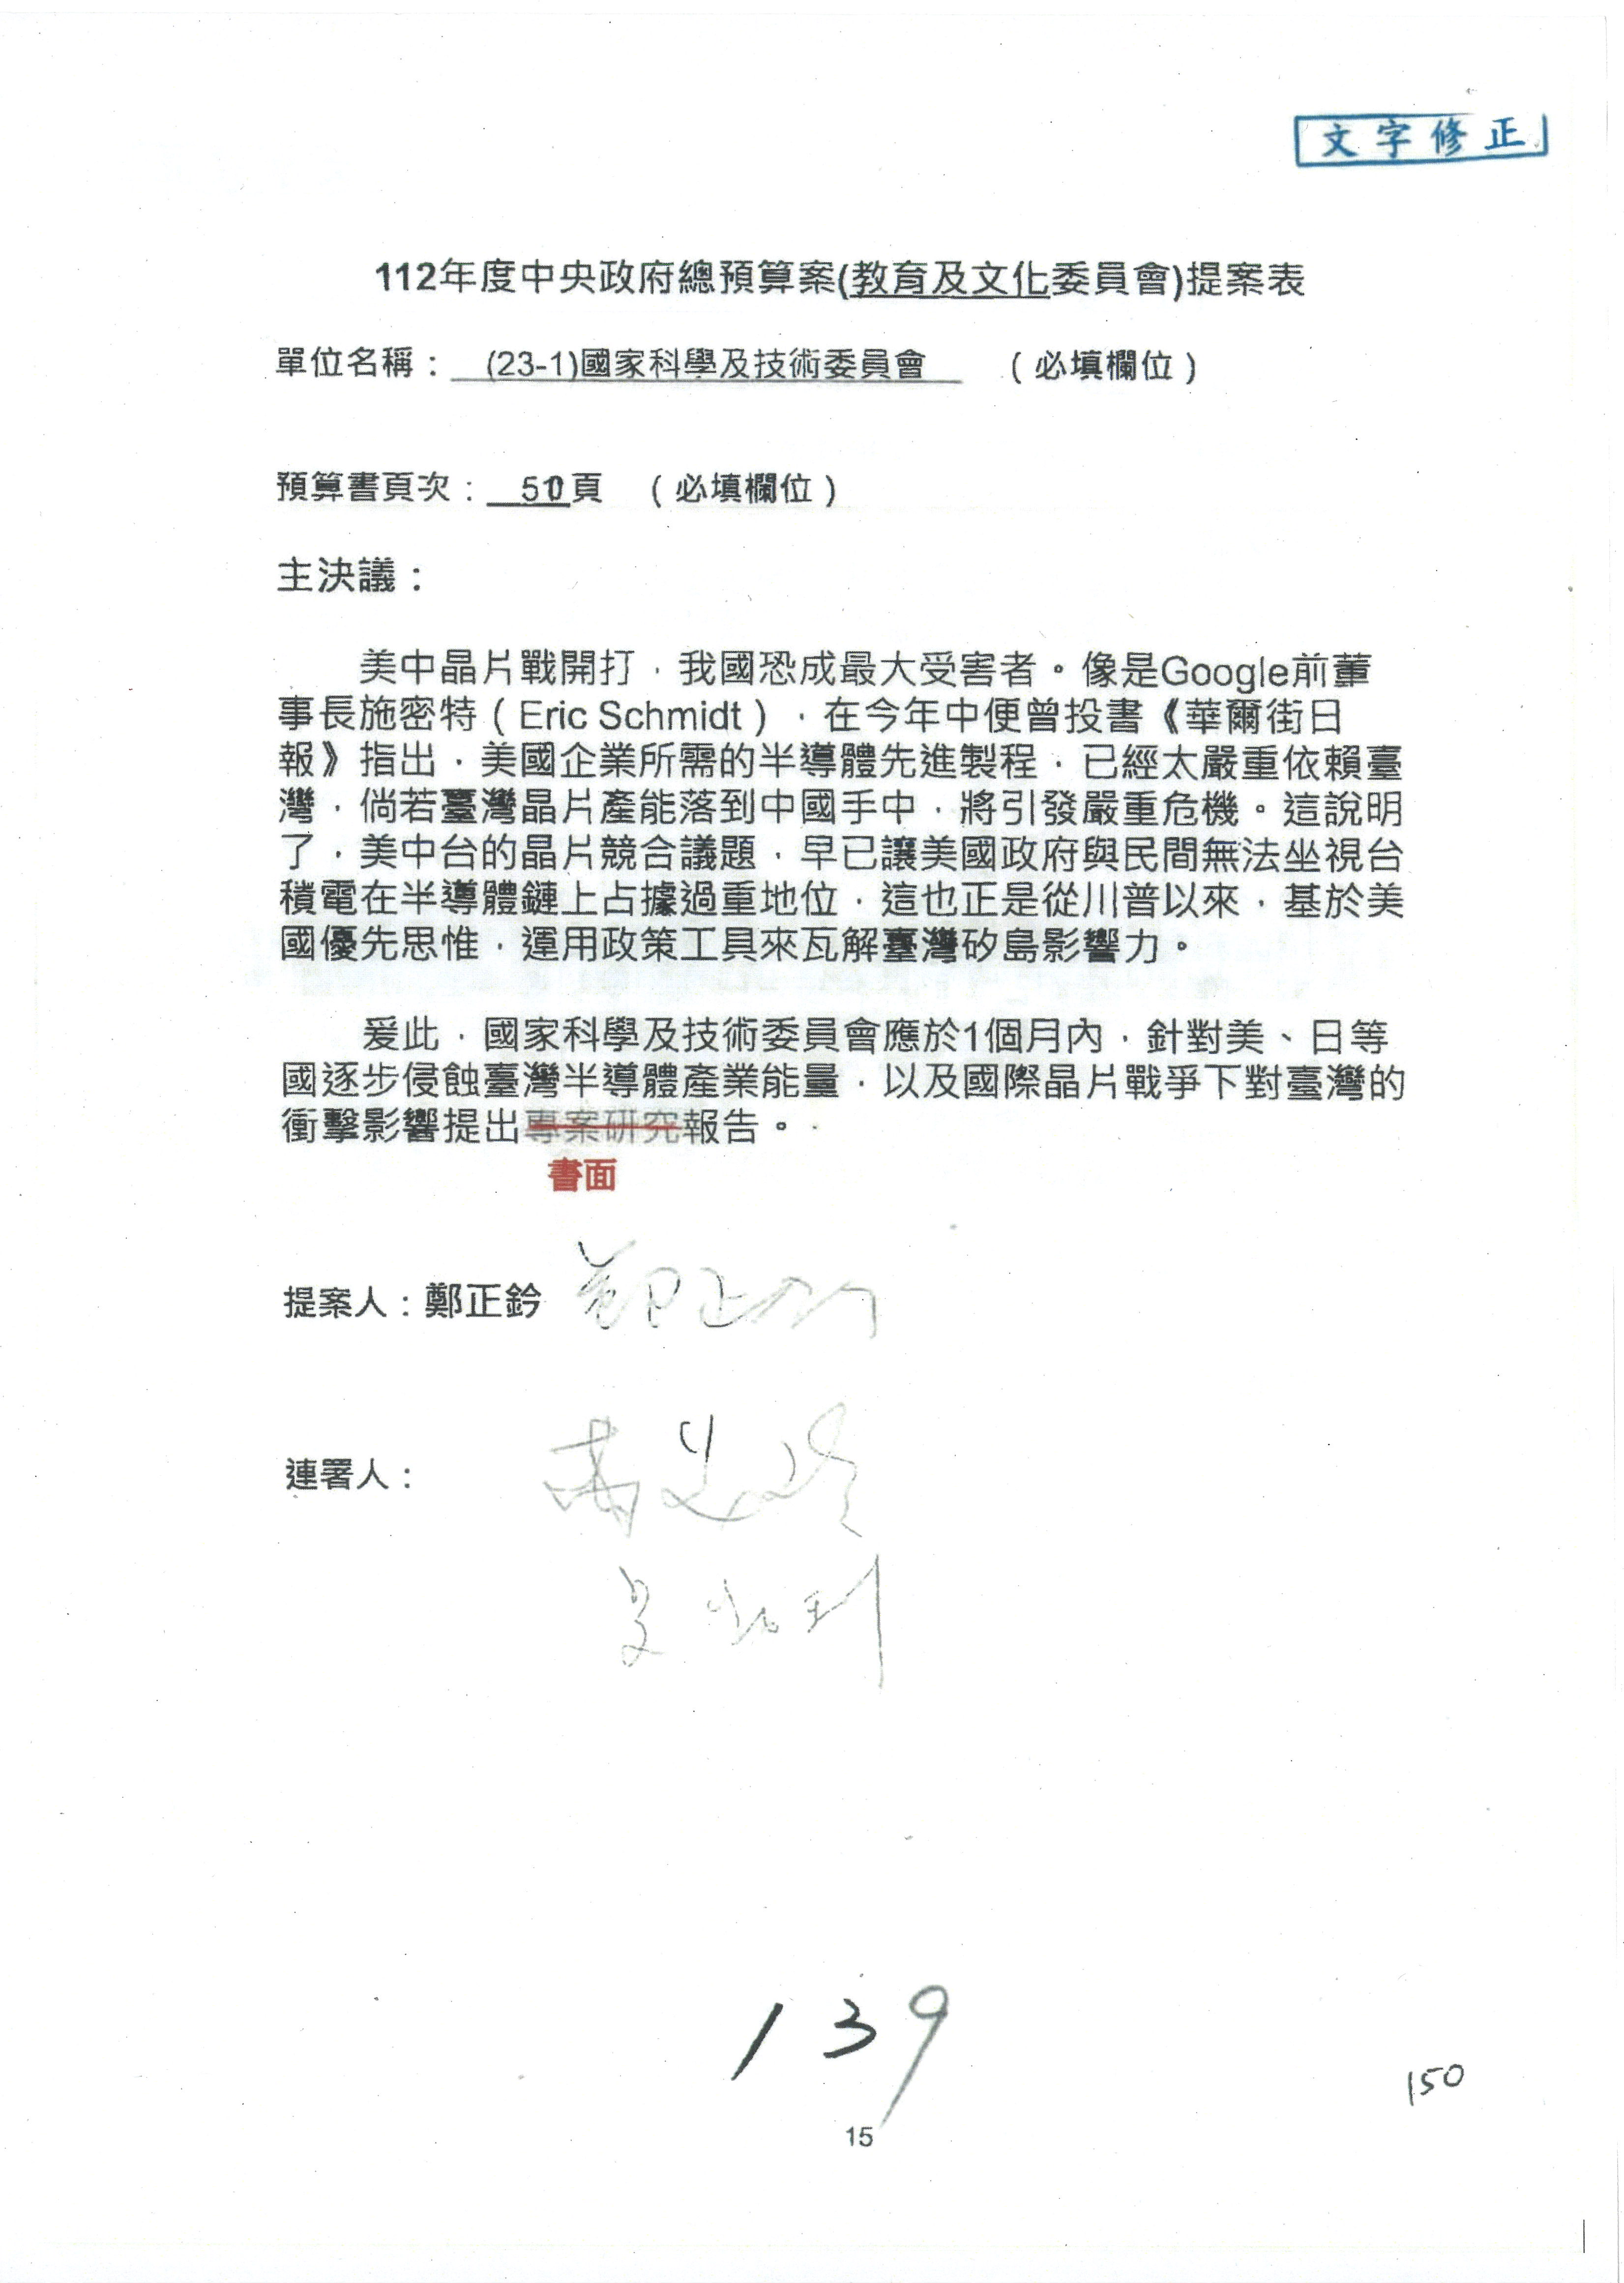 文字修正
112年度中央政府總預算案(教育及文化委員會)提案表
單位名稱： (23-1)國家科學及技術委員會 （必填欄位）
預算書頁次： 頁 （必填欄位）
主決議：
美中晶片戰開打，我國恐成最大受害者。像是Google前董
事長施密特（Eric Schmidt），在今年中便曾投書《華爾街日
報》指出，美國企業所需的半導體先進製程，已經太嚴重依賴臺
灣，倘若臺灣晶片產能落到中國手中，將引發嚴重危機。這說明
了，美中台的晶片競合議題，早已讓美國政府與民間無法坐視台
積電在半導體鏈上占據過重地位，這也正是從川普以來，基於美
國優先思惟，運用政策工具來瓦解臺灣矽島影響力。
爰此，國家科學及技術委員會應於1個月內，針對美、日等
國逐步侵蝕臺灣半導體產業能量，以及國際晶片戰爭下對臺灣的
衝擊影響提出專案研究報告。
書面
提案人：鄭正鈐 鄭正鈐
連署人：
139
150
15